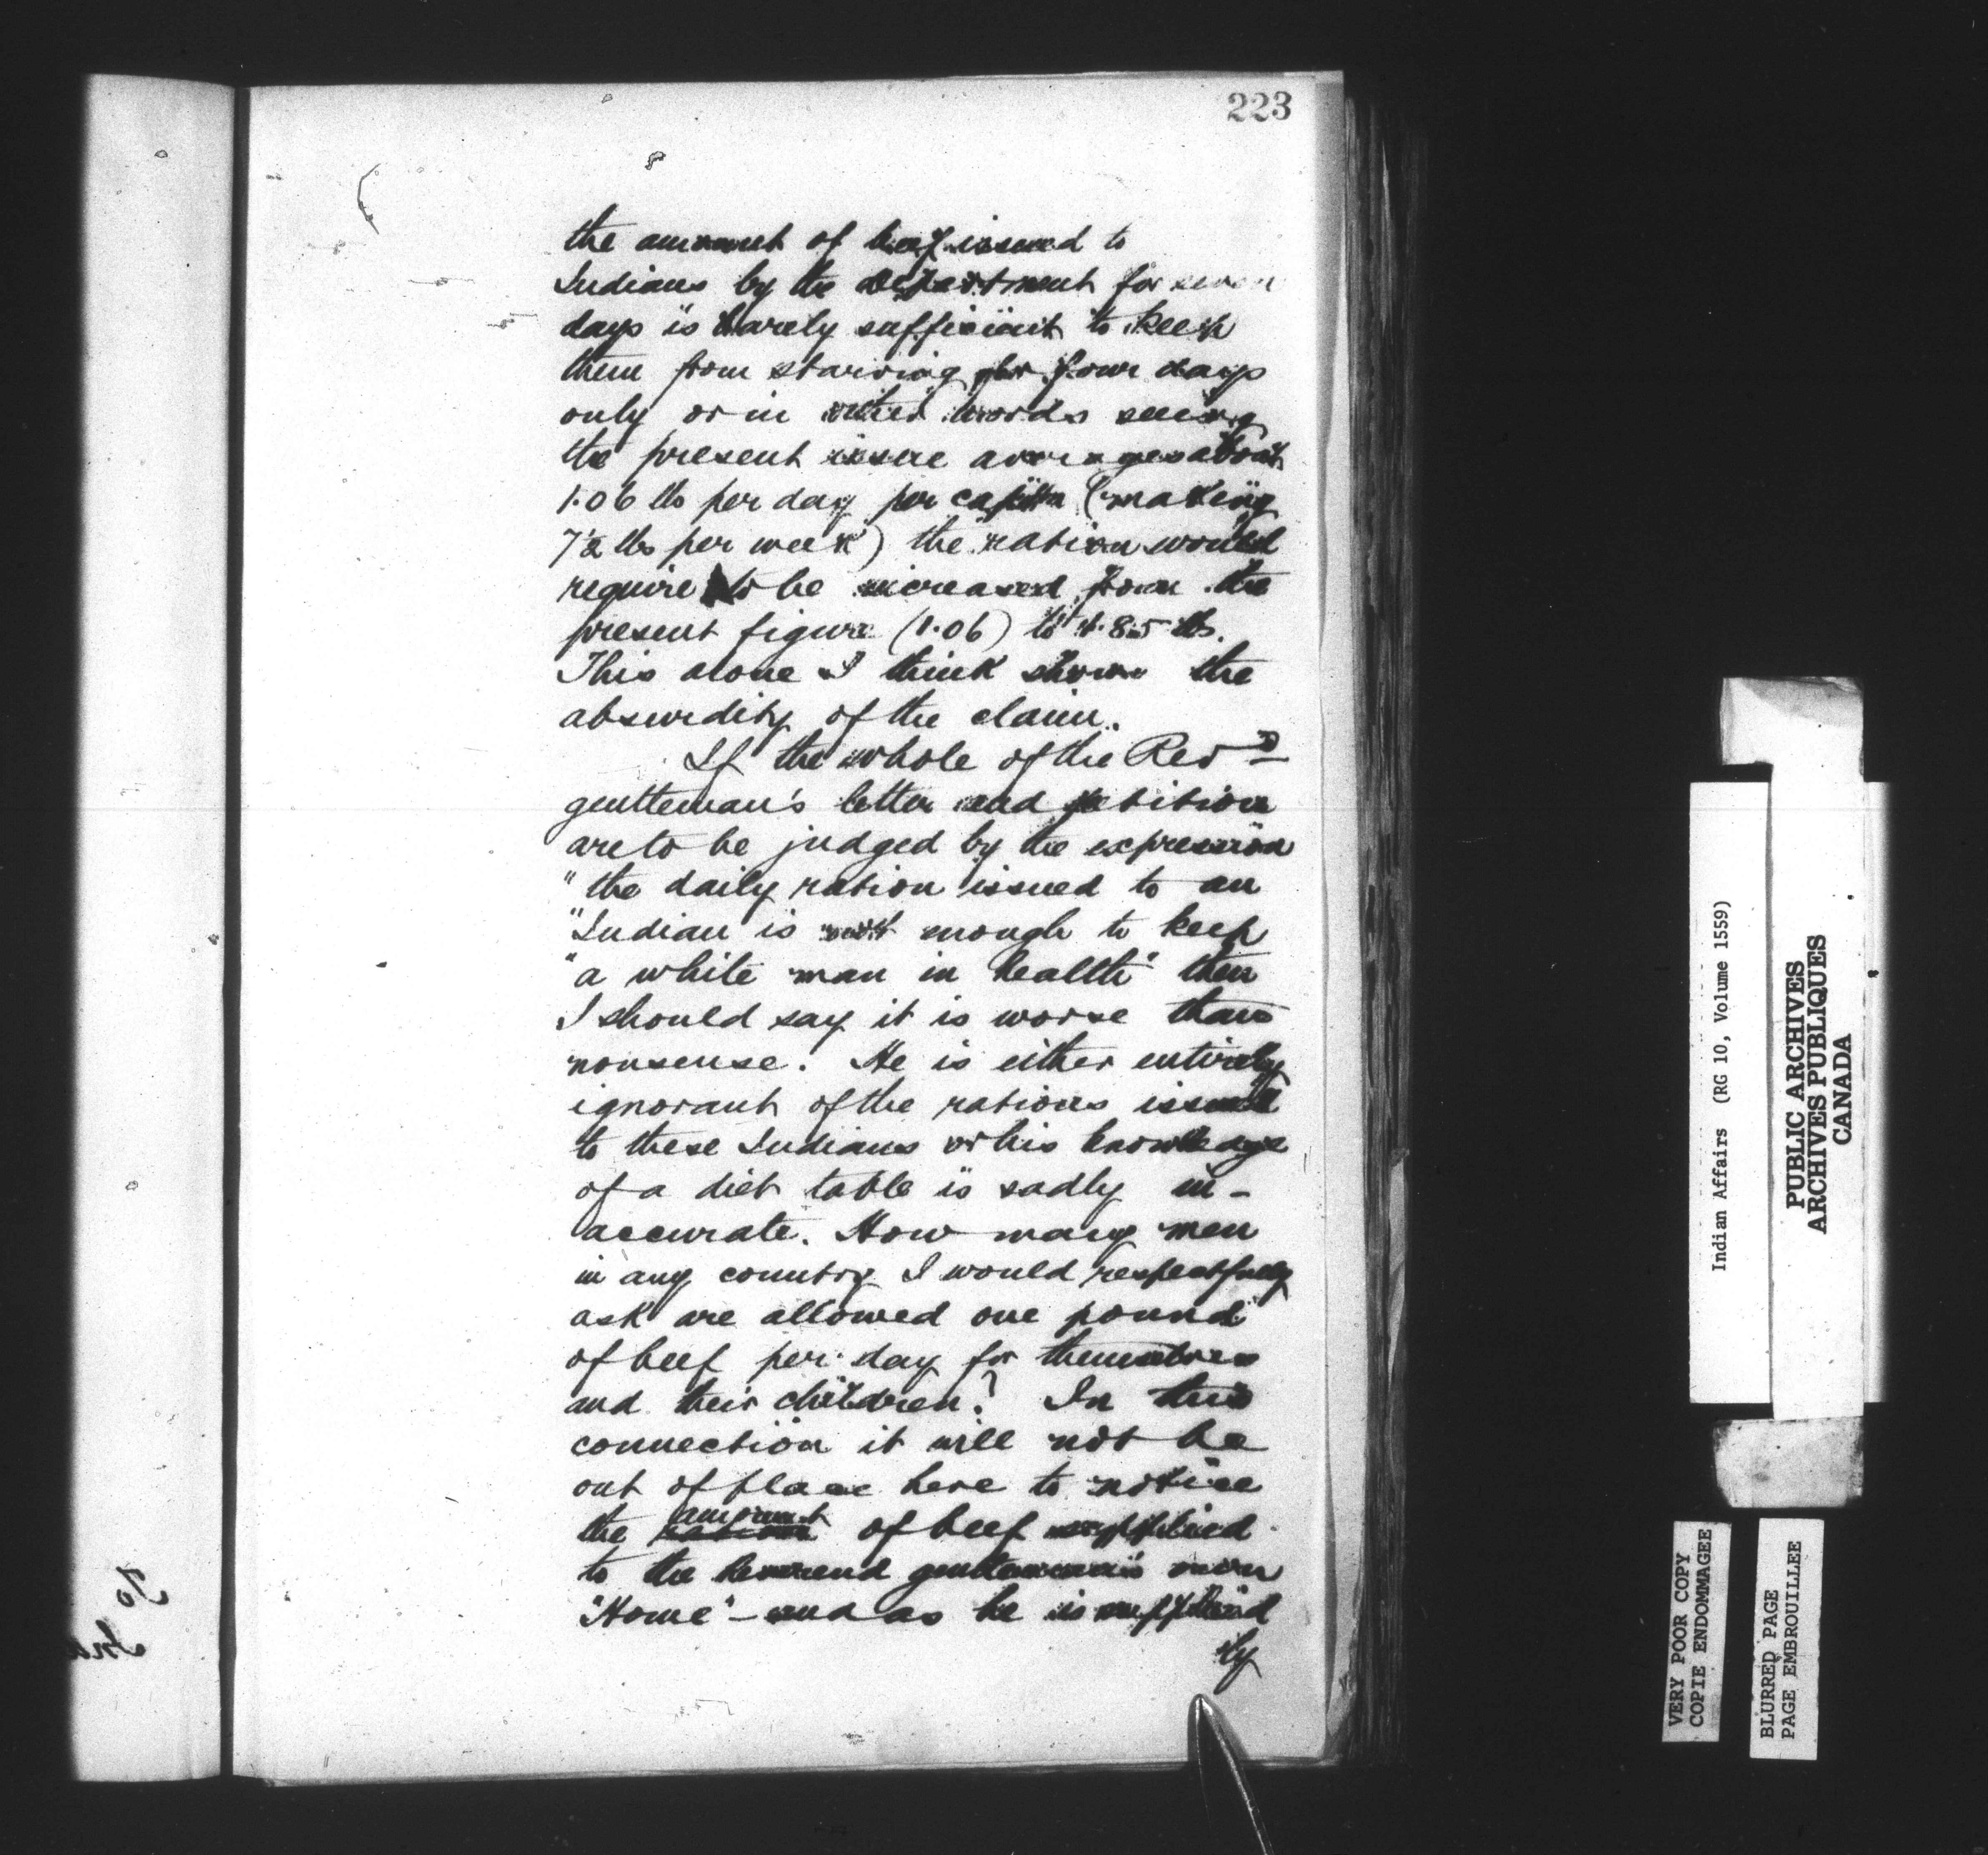 223
the amount of beef issued to
Indians by the department for seven
days is barely sufficient to keep
them from starving for four days
only or in other words seeing
the present issue averages about
1.06 lbs per day per capita (making
7½ lbs per week) the ration would
require to be increased from the
present figure (1.06) to 1.85 lbs.
This alone I think shows the
absurdity of the claim.
If the whole of the Revd
gentleman's letter and petition
are to be judged by the expression
"the daily ration issued to an
"Indian is not enough to keep
"a white man in health" then
I should say it is worse than
nonsense. He is either entirely
ignorant of the rations issued
to these Indians or his knowledge
of a diet table is sadly in-
accurate. How many men
in any country I would respectfully
ask are allowed one pound
of beef per day for themselves
and their children? In this
connection it will not be
out of place here to notice
the amount of beef supplied
to the Reverend gentleman's own
"Home" - and as he is supplied
by
Indian Affairs (RG 10, Volume 1559)
PUBLIC ARCHIVES
ARCHIVES PUBLIQUES
CANADA
VERY POOR COPY
COPIE ENDOMMAGEE
BLURRED PAGE
PAGE EMBROUILLEE